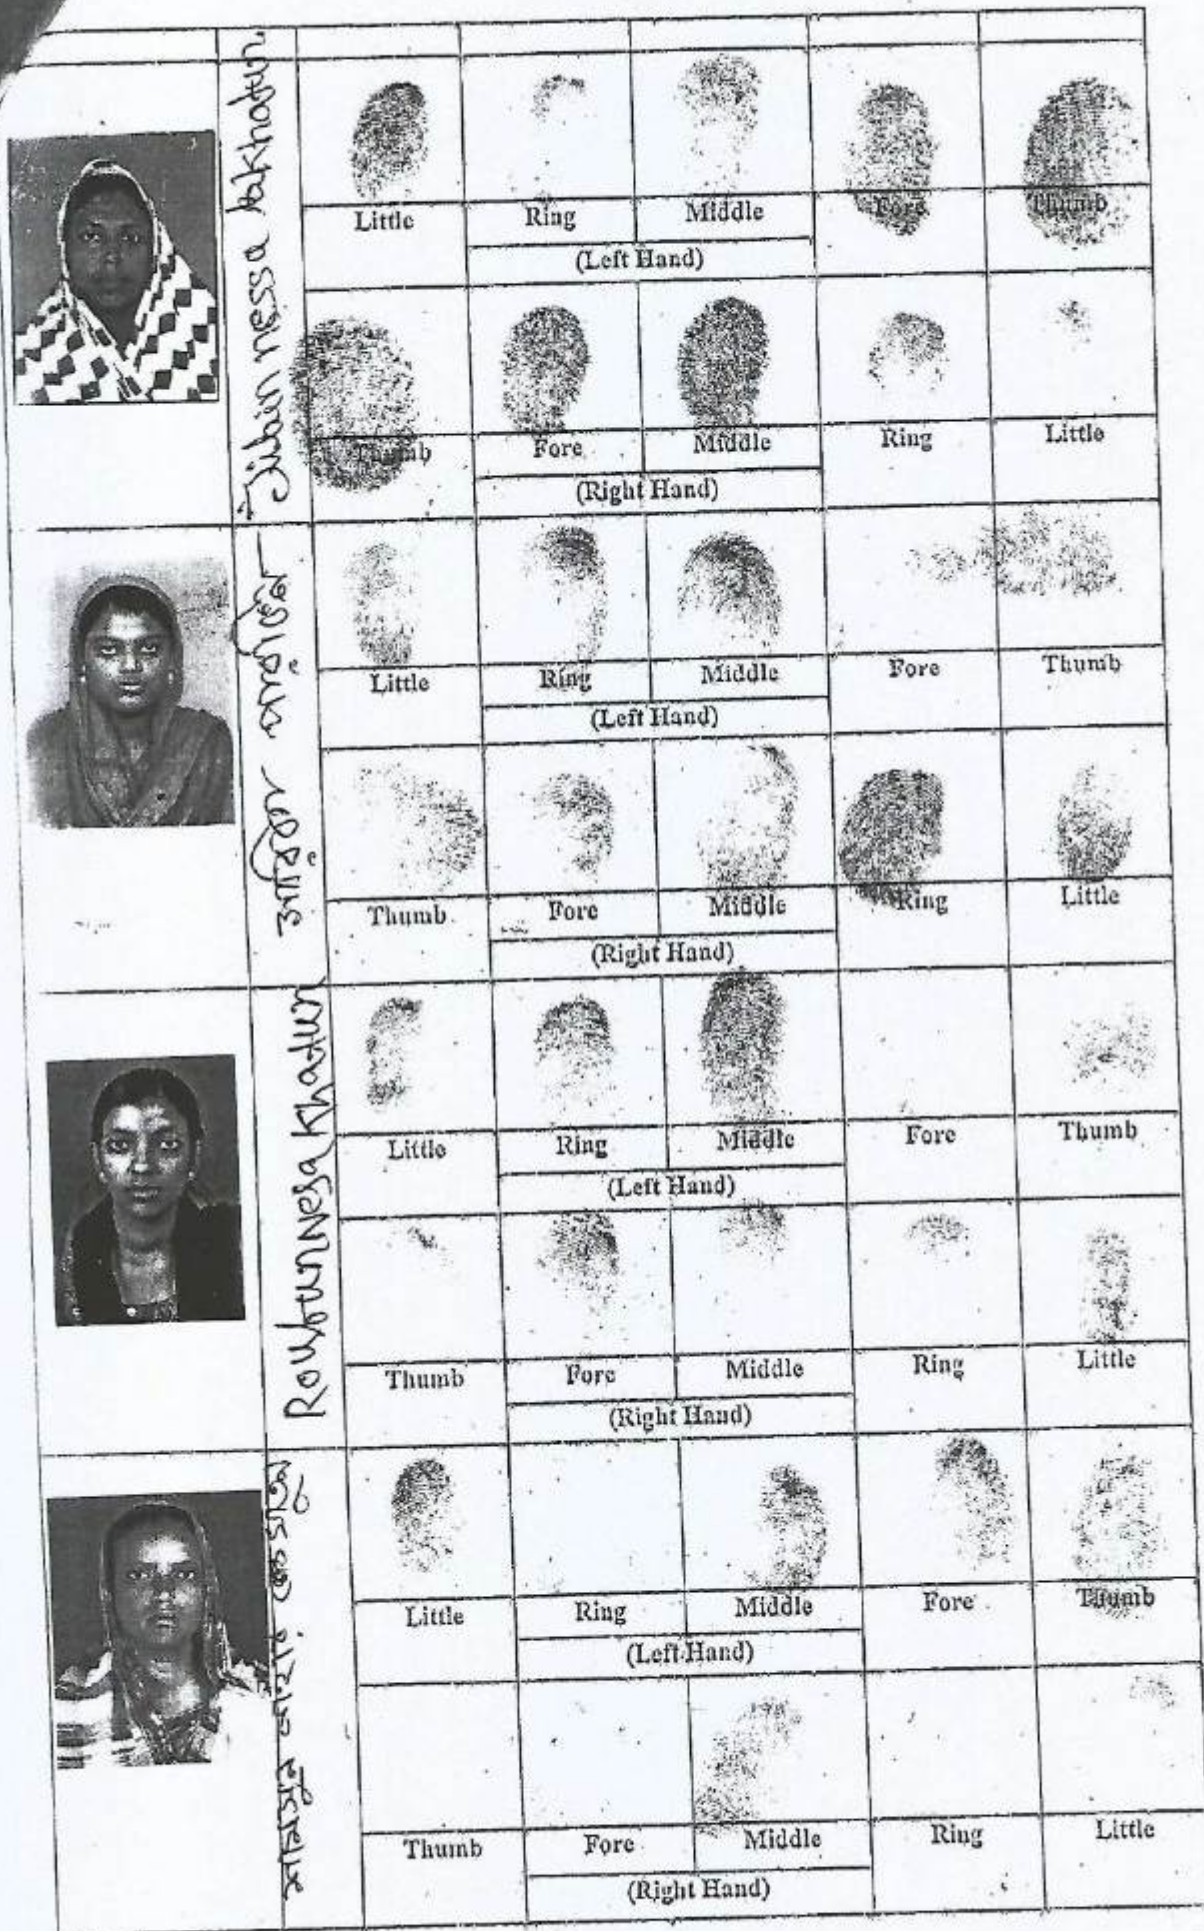 Jibin nessa
Little Ring Middle Fore Thumb
(Left Hand)
Thumb Fore Middle Ring Little
(Right Hand)
Little Ring Middle Fore Thumb
(Left Hand)
Thumb Fore Middle Ring Little
(Right Hand)
Khatun
Little Ring Middle Fore Thumb
(Left Hand)
Thumb Fore Middle Ring Little
(Right Hand)
Little Ring Middle Fore Thumb
(Left Hand)
Thumb Fore Middle Ring Little
(Right Hand)